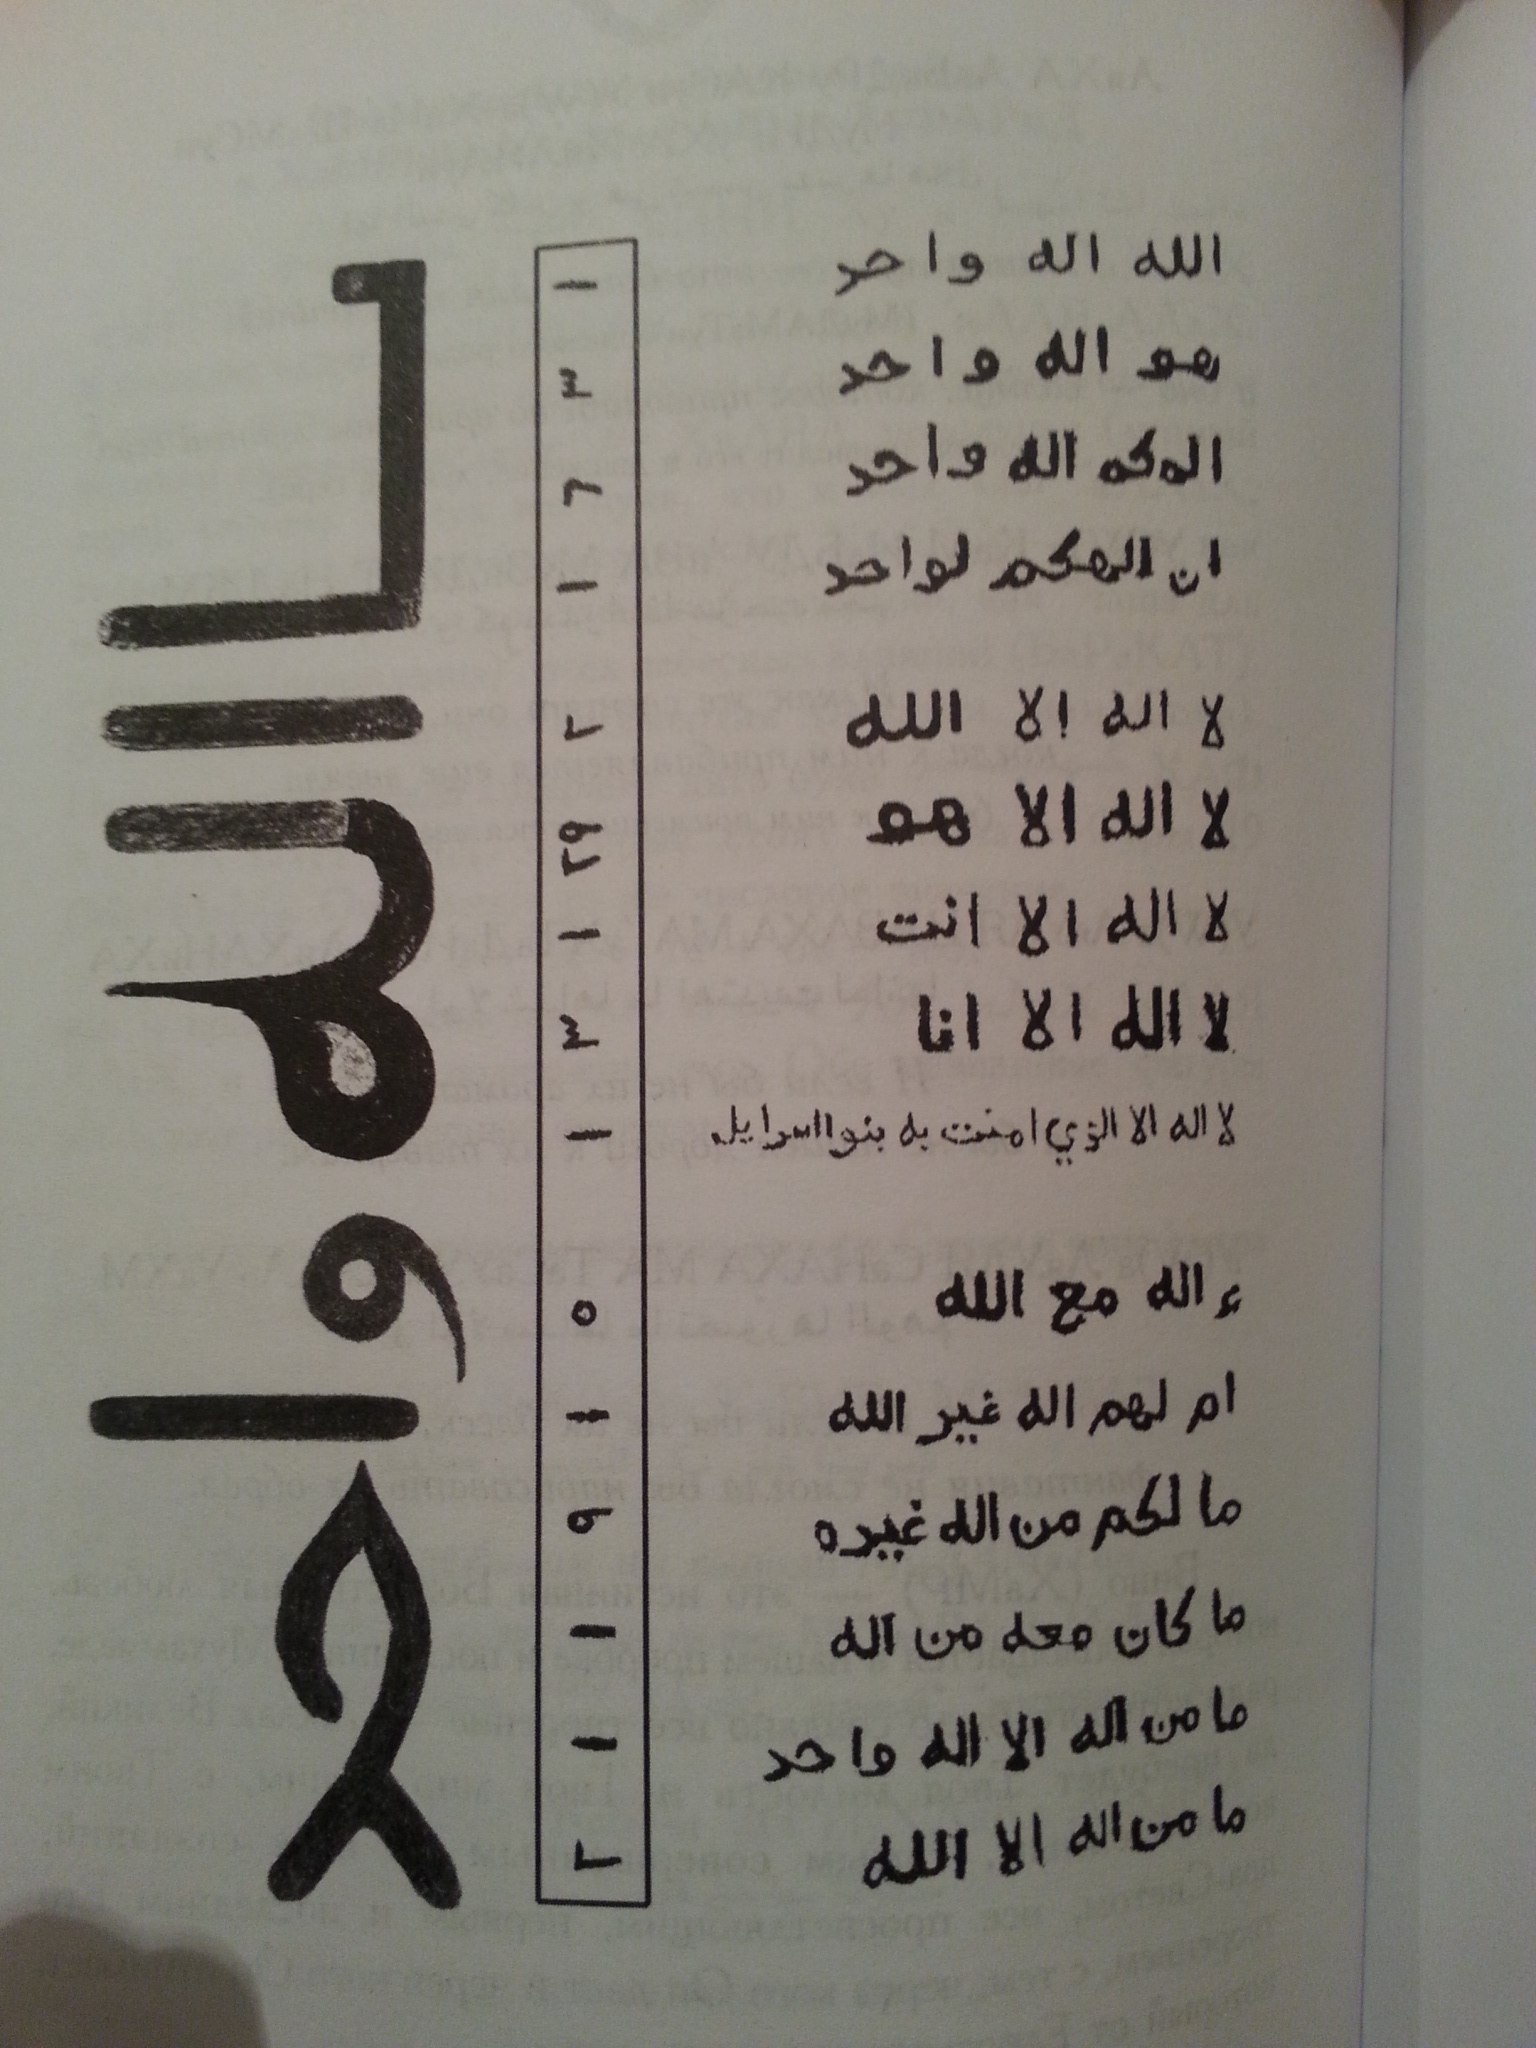 الله اله واحد
١
هو اله واحد
٣
الهكم اله واحد
٦
ان الهكم لواحد
١
لا اله الا الله
٢
لا اله الا هو
٢٩
لا اله الا انت
١
لا اله الا انا
٣
لا اله الا الذي امنت به بنوا اسرايل
١
ء اله مع الله
٥
ام لهم اله غير الله
١
ما لكم من اله غيره
٩
ما كان معه من اله
١
ما من اله الا اله واحد
١
ما من اله الا الله
٢
واحد